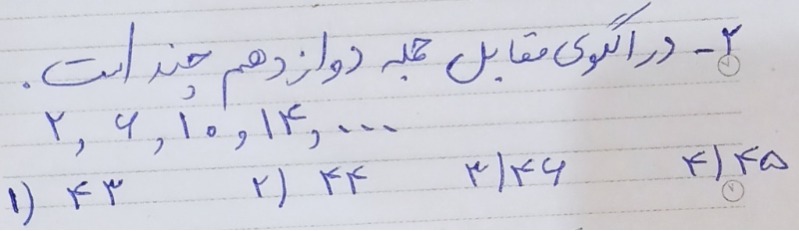 ۲- در الگوی مقابل جمله دوازدهم چند است.
۲, ۶, ۱۰, ۱۴, ...
۱) ۴۳ ۲) ۴۴ ۳) ۴۶ ۴) ۴۵